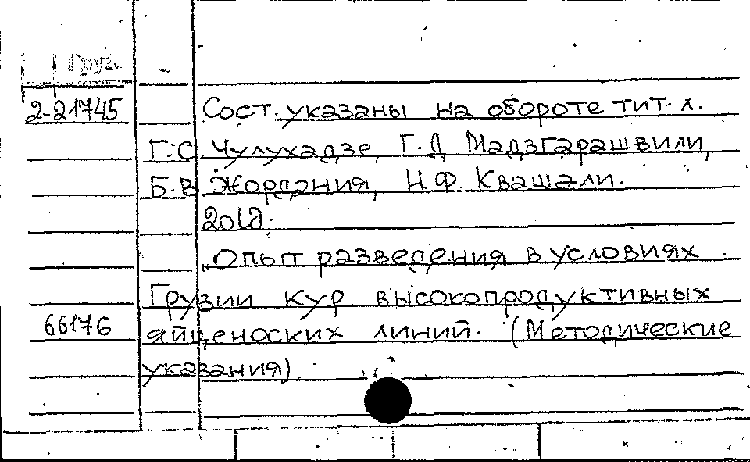 Груз.
2-21745 Сост. указаны на обороте тит. л.
Г.С. Чулухадзе, Г.Д. Мадзгарашвили,
Б.В. Жордания, Н.Ф. Квашали.
Опыт разведения в условиях
Грузии кур высокопродуктивных
66176 яйценоских линий. (Методические
указания)